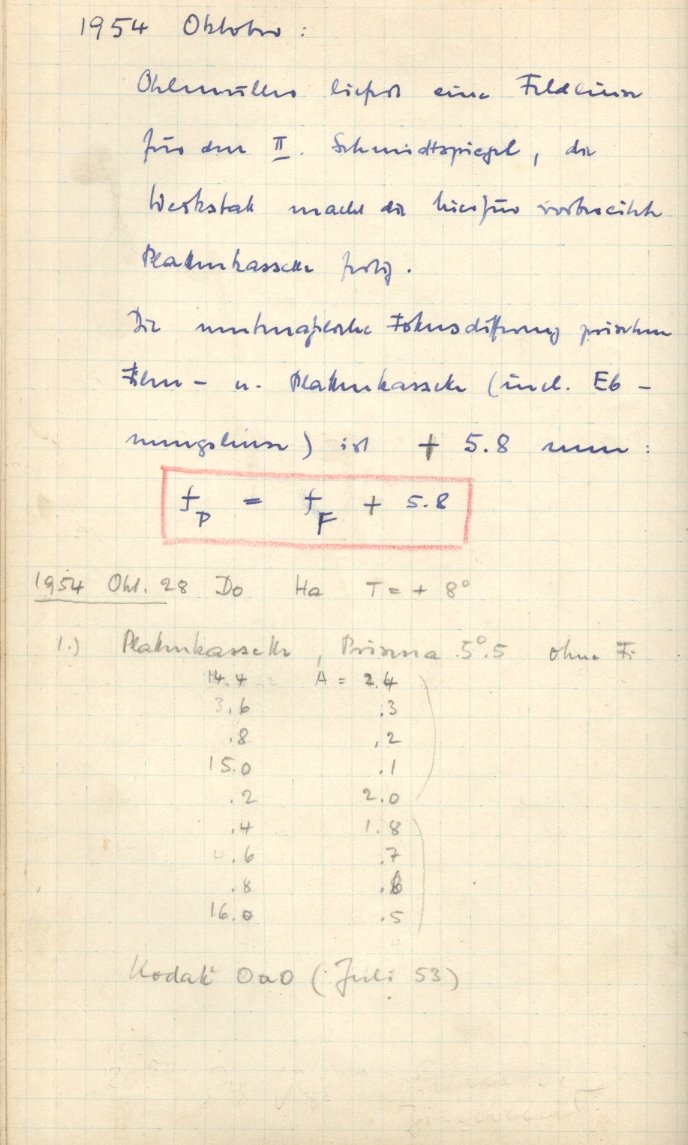 1954 Oktober :
Ohlmüller liefert eine Feldlinse
für den II. Schmidtspiegel, die
Werkstatt macht die hierfür vorbereitete
Plattenkassette fertig.
Die Fokusdifferenz zwischen
Film- u. Plattenkassette (incl. Eb-
nungslinse) ist + 5.8 mm :
f_P = f_F + 5.8
1954 Okt. 28 Do Ha T = + 8°
1.) Plattenkassette, Prisma 5°.5 ohne Fi
14.4 A = 2.4
.6 .3
.8 .2
15.0 .1
.2 2.0
.4 1.8
.6 .7
.8 .6
16.0 .5
Kodak OaO (Juli 53)